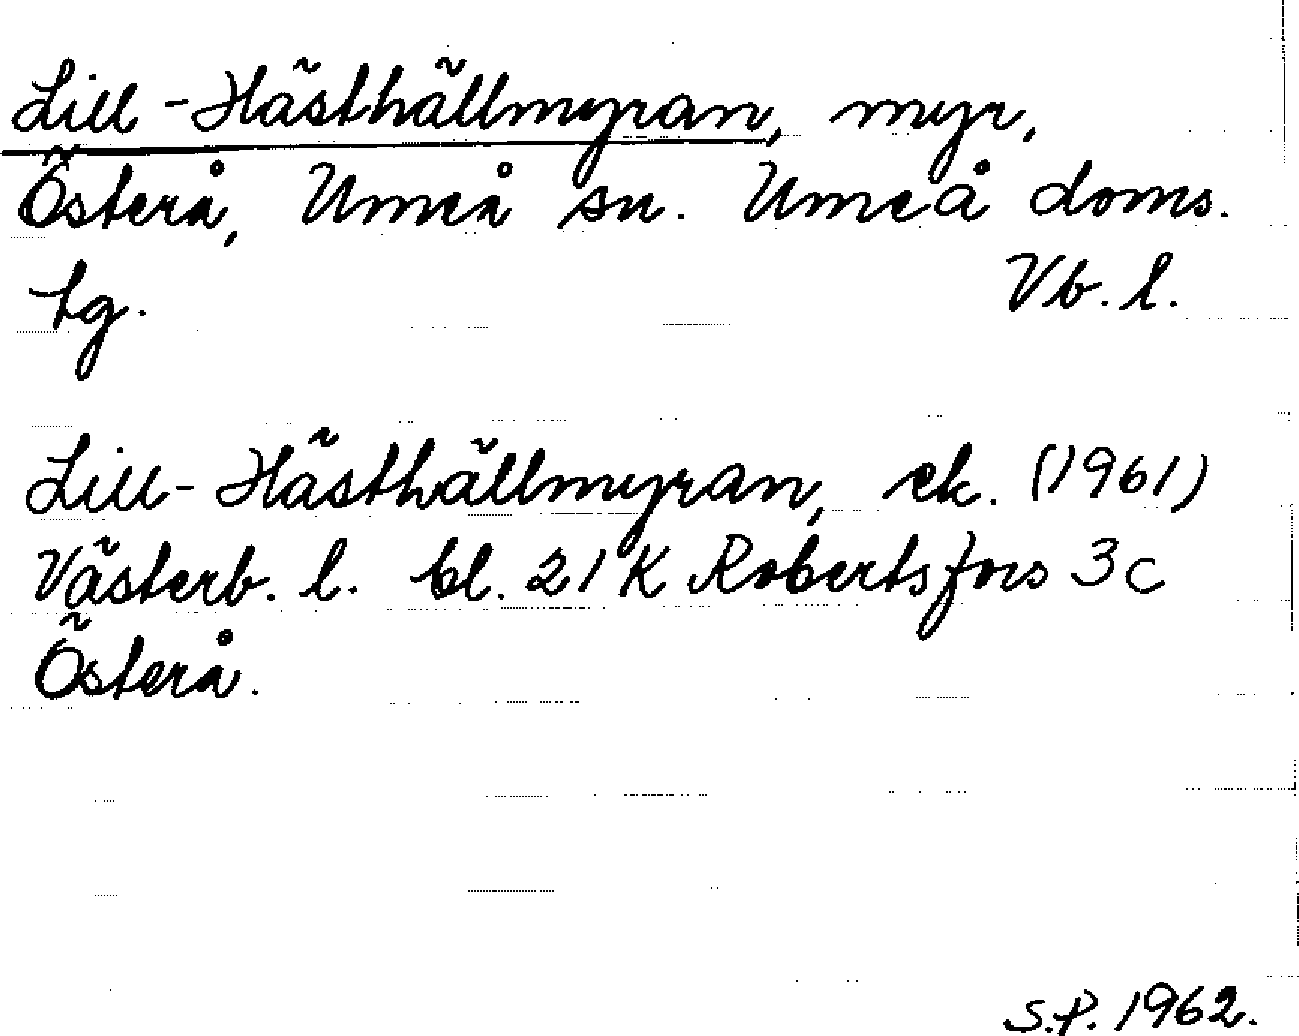 Lill-Hästhällmyran, myr,
Österå, Umeå sn. Umeå doms.
tg. Vb. l.
Lill-Hästhällmyran, ek. (1961)
Västerb. l. bl. 21 K Robertsfors 3 c
Österå.
S.P. 1962.